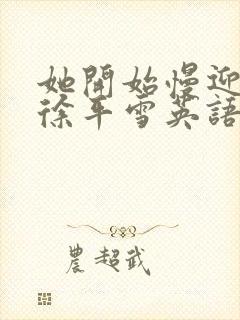 她開始慢迎
徐平雪英語
農超武